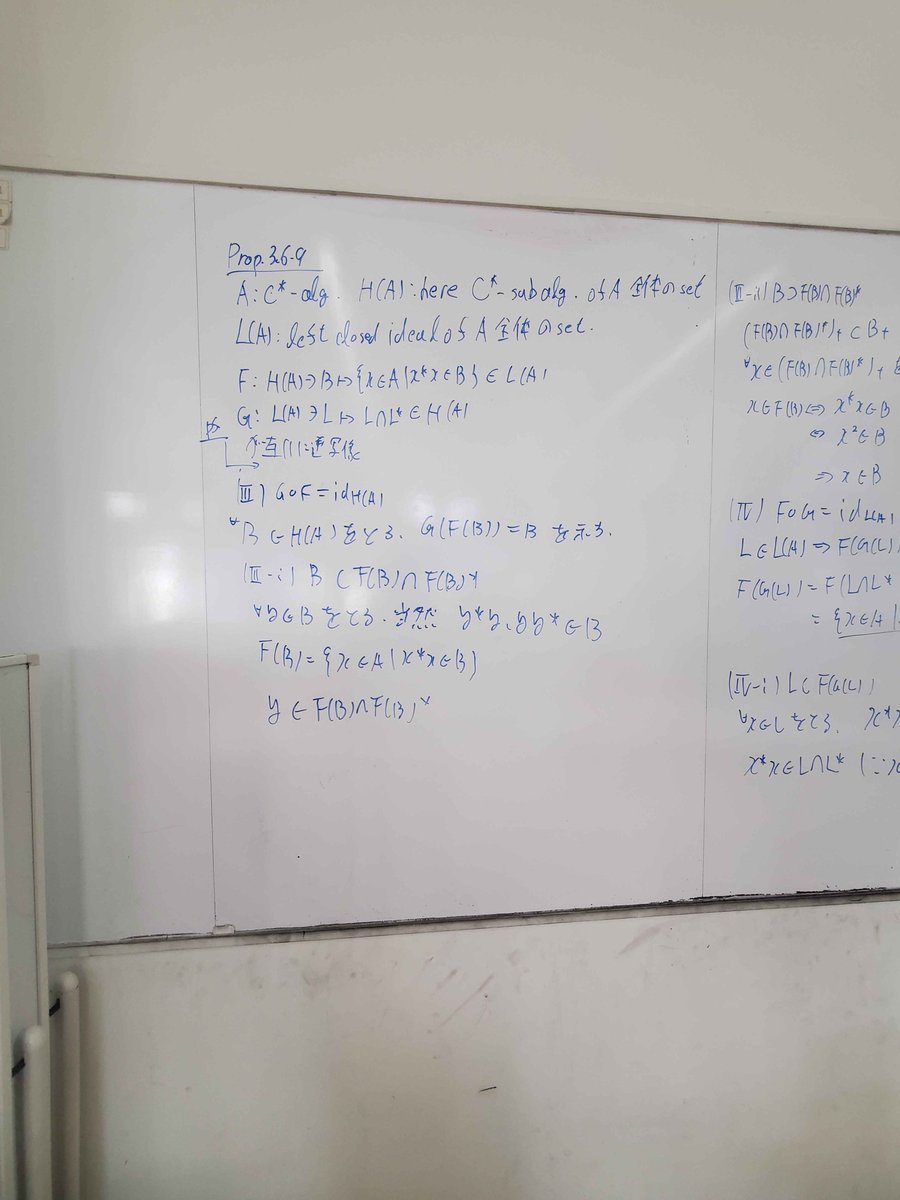 Prop.3.6.9
A: C*-alg. H(A): here C*-subalg. of A 全体の set
L(A): left closed ideal of A 全体の set.
F: H(A)∋B↦{x∈A|x*x∈B}∈L(A)
G: L(A)∋L↦L∩L*∈H(A)
が互いに逆写像
(III) G∘F=id_H(A)
∀B∈H(A)をとる. G(F(B))=B を示す.
(III-i) B⊂F(B)∩F(B)*
∀y∈Bをとる. 当然 y*y, yy*∈B
F(B)={x∈A|x*x∈B}
y∈F(B)∩F(B)*
(III-ii) B⊃F(B)∩F(B)*
(F(B)∩F(B)*)+⊂B+
∀x∈(F(B)∩F(B)*)+
x∈F(B)⇔x*x∈B
⇔x²∈B
⇒x∈B
(IV) F∘G=id_L(A)
L∈L(A)⇒F(G(L)
F(G(L))=F(L∩L*
={x∈A|
(IV-i) L⊂F(G(L))
∀x∈Lをとる. x*
x*x∈L∩L* (∵x